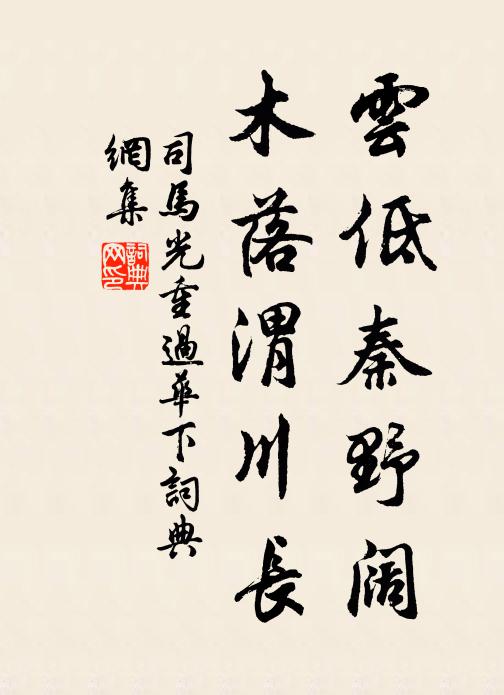 雲低秦野阔
木落渭川長
司馬光重過華下詞典
網集
詞典
网印